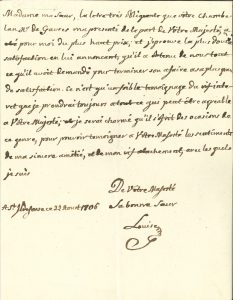 Madame ma Sœur, la lettre très obligeante que votre Chambelan
Mr de m'a presenté de la part de Vôtre Majesté, a
été pour moi du plus haut prix, et j'éprouve la plus douce
satisfaction en lui annoncant qu'il a obtenu de nous tout
ce qu'il avoit demandé pour terminer son affaire a sa plus grande
satisfaction. Ce n'est qu'un foible temoignage du vif interet
que je prendrai toujours a tout ce que peut être agreable
a Vôtre Majesté, et je serai charmée qu'il s'ofrit des ocasions de
ce genre, pour pouvoir temoigner a Vôtre Majesté les sentiments
de ma sincere amitié, et de mon vif atachement, avec les quels
je suis
De Vôtre Majesté
a St Ildefonse ce 22 Aout 1806
Sa bonne Sœur
Louise